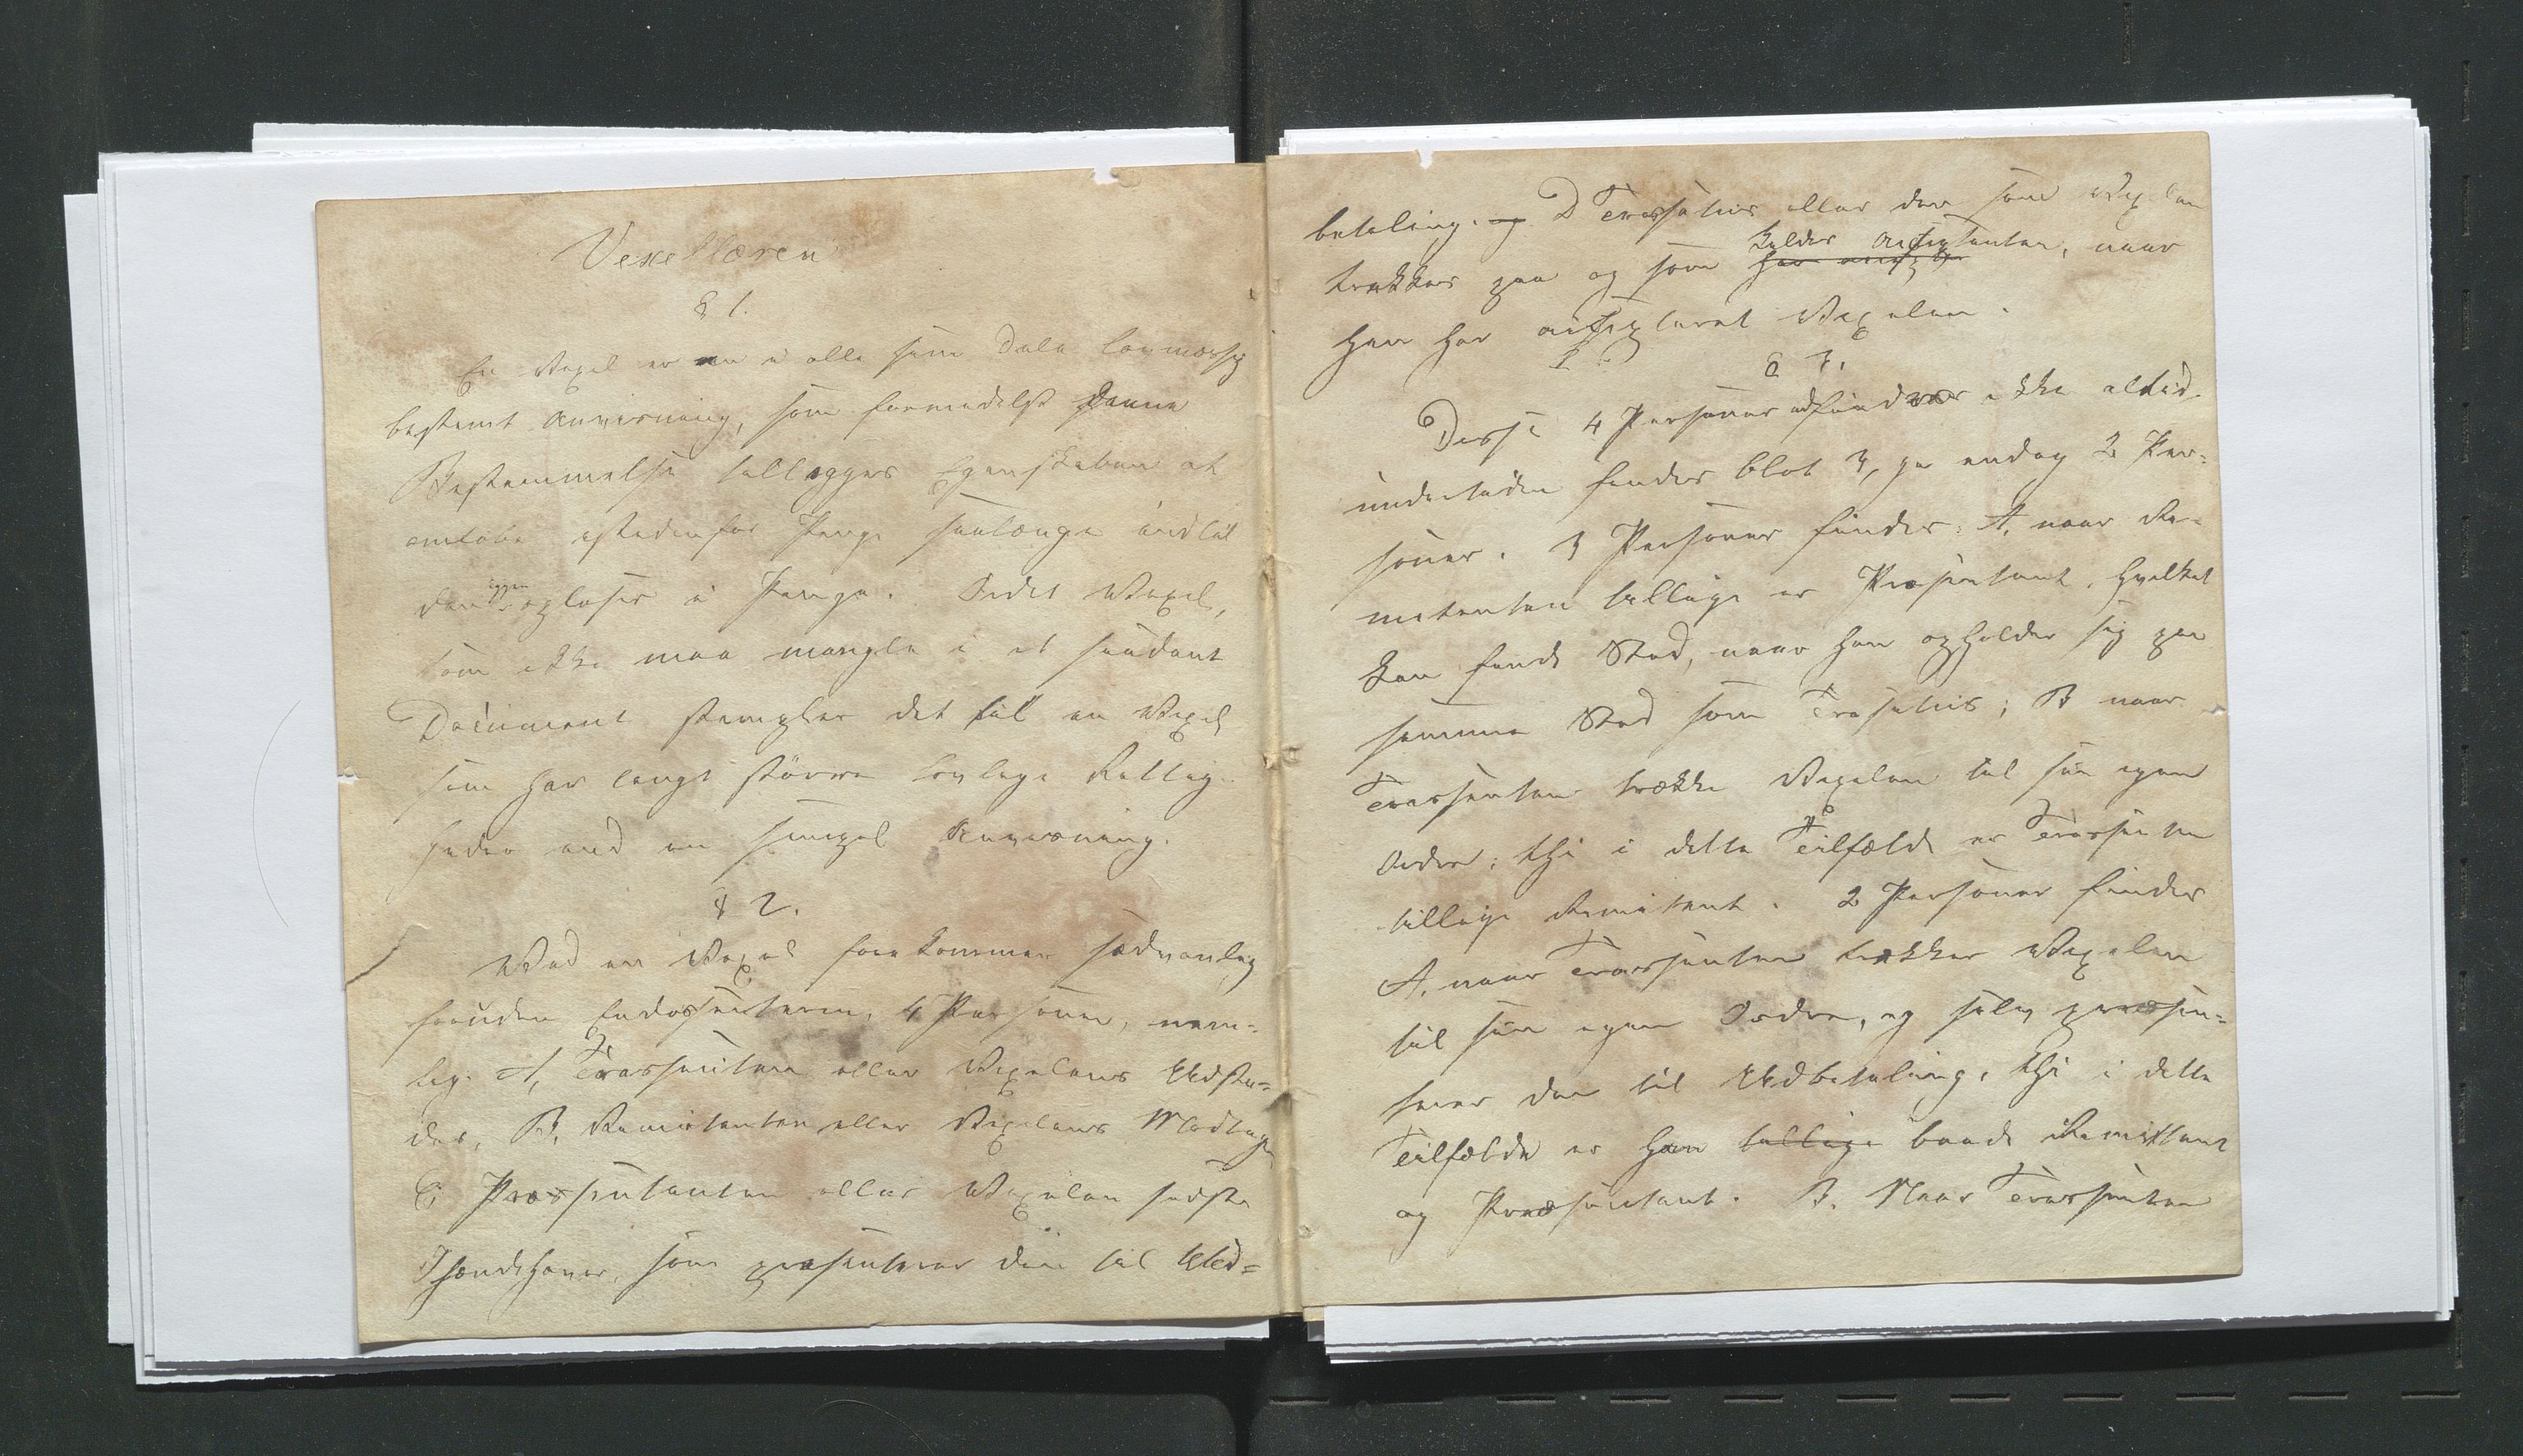 Vexellæren
§ 1.
En Vexel er en i alle sine Dele lovmæssig
bestemt Anviisning, som formedelst denne
Bestemmelse tillægges Egenskaben at
omløbe istedenfor Penge saalænge indtil
den igjen opløses i Penge. Ordet Vexel,
som ikke maa mangle i et saadant
Document stempler det til en Vexel
som har langt større lovlige Rettig-
heder end en simpel Anviisning.
§ 2.
Ved en Vexel forekommer sædvanlig
foruden Endossenterne, 4 Personer, nem-
lig. A, Trassenten eller Vexelens Udste-
der, B, Remittenten eller Vexelens Modtager
C Præsentanten eller Vexelen sidste
Ihændehaver, som præsenterer den til Ud-
betaling. og D Trassatus eller den som Vexelen
trækkes paa og som kaldes Acceptanten, naar
han har accepteret Vexelen.
§ 3.
Disse 4 Personer udfindes ikke altid.
undertiden findes blot 3, ja endog 2 Per-
soner. 3 Personer findes: A, naar Re-
mitenten tillige er Præsentant, hvilket
kan finde Sted, naar han opholder sig paa
samme Sted som Trasatus; B naar
Trassenten trække Vexelen til sin egen
Ordre; thi i dette Tilfælde er Trassenten
tillige Remitent. 2 Personer findes
A, naar Trassenten trækker Vexelen
til sin egen Ordre, og selv præsen-
terer den til Udbetaling, thi i dette
Tilfælde er han tillige baade Remittent
og Præsentant. B. Naar Trassenten